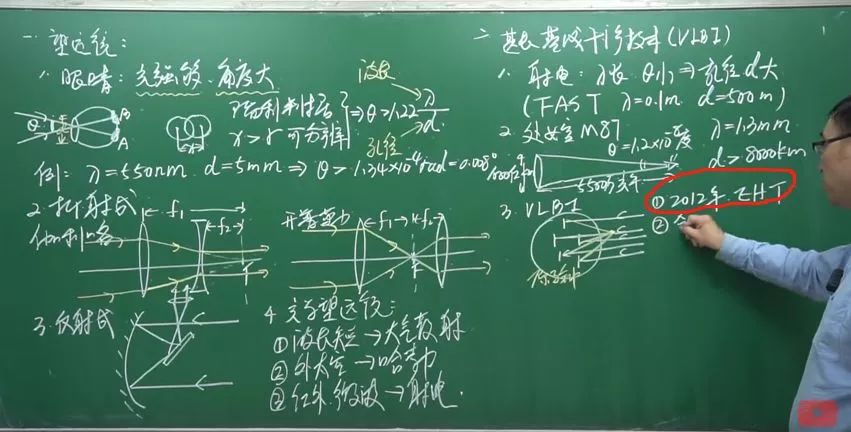 一. 望远镜:
1. 眼睛: 光强够. 角度大
波长
θ
B
A
瑞利判据
r > r 可分辨
⇒ θ > 1.22 λ/d
孔径
例: λ=550nm. d=5mm ⇒ θ > 1.34×10⁻⁴rad=0.008°
2. 折射式
伽利略
f₁
f₂
开普勒
f₁
f₂
3. 反射式
4. 光学望远镜:
① 波长短 → 大气散射
② 外太空 → 哈勃
③ 红外. 微波 → 射电.
二. 甚长基线干涉技术 (VLBI)
1. 射电: λ长. θ小 ⇒ 孔径d大
(FAST λ=0.1m. d=500m)
2. 处女座 M87
θ=1.2×10⁻⁸度
λ=1.3mm.
d > 8000km
1000亿km
5500万光年
3. VLBI
C
C
C
原子钟
① 2012年. EHT
②